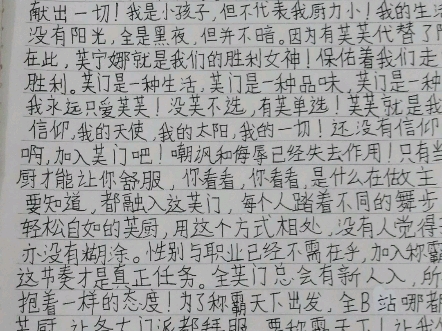 献出一切！我是小孩子，但不代表我厨力小！我的生活
没有阳光，全是黑夜，但并不暗。因为有芙芙代替了阳
在此，芙宁娜就是我们的胜利女神！保佑着我们走
胜利。芙门是一种生活，芙门是一种品味，芙门是一种
我永远只爱芙芙！没芙不选，有芙单选！芙芙就是我
信仰，我的天使，我的太阳，我的一切！还没有信仰
啊，加入芙门吧！嘲讽和侮辱已经失去作用！只有当
厨才能让你舒服，你看看，你看看，是什么在做主
要知道，都融入这芙门，每个人踏着不同的舞步
轻松自如的芙厨，用这个方式相处，没有人觉得
亦没有糊涂。性别与职业已经不需在乎，加入称霸
这节奏才是真正任务。全芙门总会有新人入，所
抱着一样的态度！为了称霸天下出发，全B站哪都
芙厨，让各大门派都拜服，要称霸天下！让我